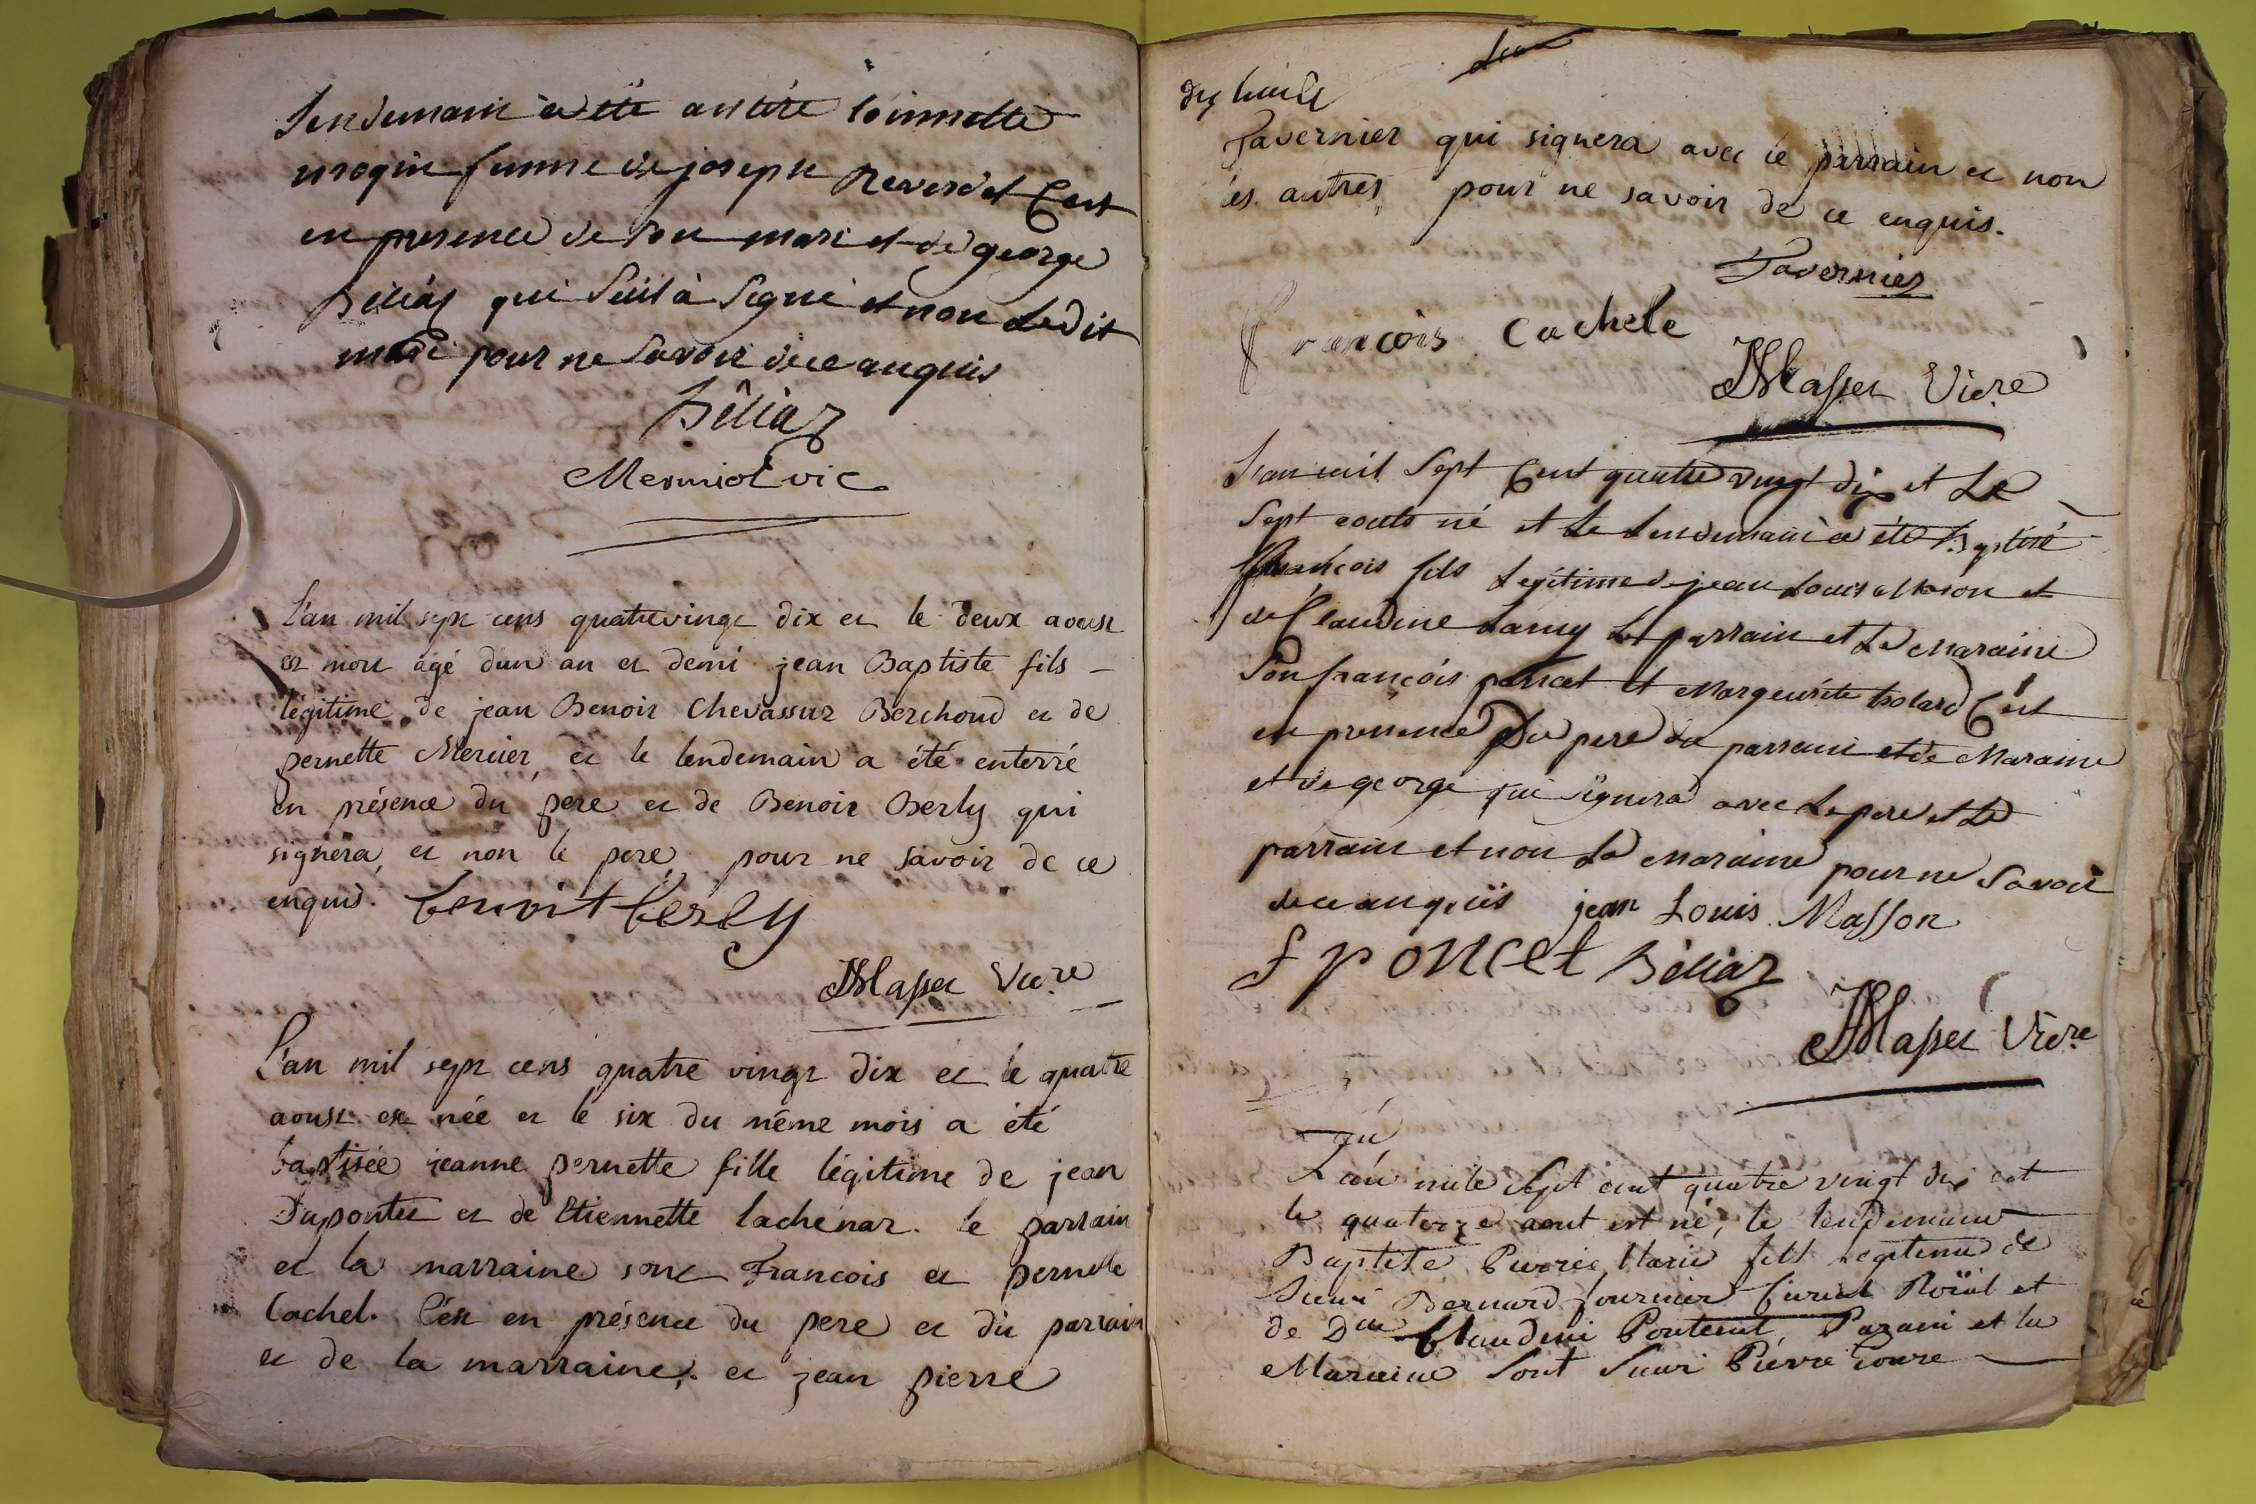 lendemain a été antéré toinnette
mogin femme de joseph Reverdet C'est
en presence de son mari et de george
Béliaz qui seul à signé et non Ledit
mari pour ne savoir de ce anquis
Béliaz
Mermiot vic
L'an mil sept cens quatrevingt dix et le deux aoust
est mort âgé d'un an et demi jean Baptiste fils -
légitime de jean Benoit Chevassuz Berchoud et de
pernette Mercier, et le lendemain a été enterré
en présence du pere et de Benoit Berly qui
signera, et non le pere pour ne savoir de ce
enquis. benoit berly
Masset Vic.re
L'an mil sept cens quatre vingt dix et le quatre
aoust est née et le six du même mois a été
baptisée jeanne pernette fille légitime de jean
Duponte et de Etiennette Lachenar. le parrain
et la marraine sont Francois et pernette
Cachel. C'est en présence du pere et du parrain
et de la marraine, et jean pierre
dix huit
Tavernier qui signera avec le parrain et non
les autres pour ne savoir de ce enquis.
Tavernier
francois Cachele
Masset Vic.re
L'an mil Sept Cent quatre vingt dix et Le
Sept aouts né et Le Lendemain a été Baptisé
françois fils Legitime de jean Louis Mason et
de Claudine Lamy Le parrain et La Maraine
Son françois poncet et Margeurite C'est
en presence Du pere du parrain et de Maraine
et de george qui signera avec Le pere et Le
parrain et non La Maraine pour ne Savoir
de ce anquis jean Louis Masson
f poncet Béliaz
Masset Vic.re
L'an mile sept cent quatre vingt dix et
le quatorze aout est né, le lendemain
Baptete Pierre Marie fils legitime de
Sieur Bernard fournier Curial Roïal et
de D.lle Claudine Ponteut, Parain et la
Maraine Sont Sieur Pierre